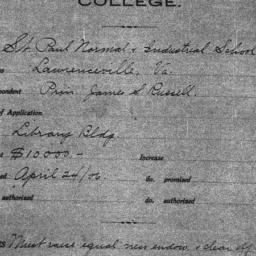 COLLEGE.
St. Paul Normal & Industrial School
Lawrenceville, Va.
pondent Prin. James S. Russell.
of Application
Library Bldg.
$10000.- Increase
ed April 24/06. do. promised
authorized do. authorized
Must raise equal new endow. & clear off